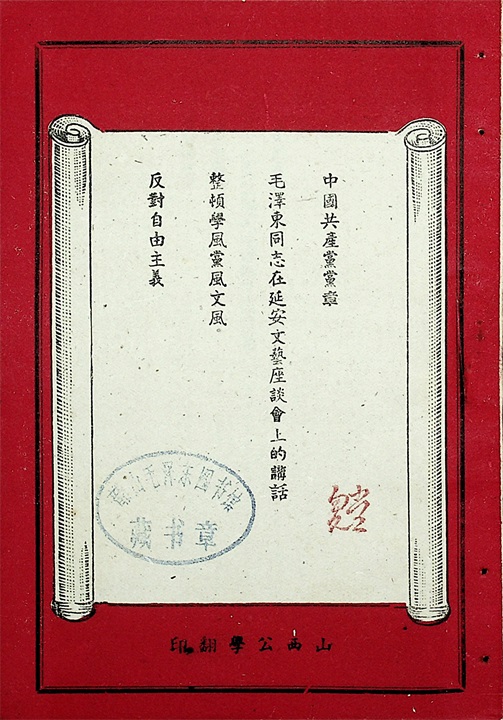 中國共產黨黨章
毛澤東同志在延安文藝座談會上的講話
整頓學風黨風文風。
反對自由主義
韶山毛泽东图书馆
藏书章
山西公學翻印